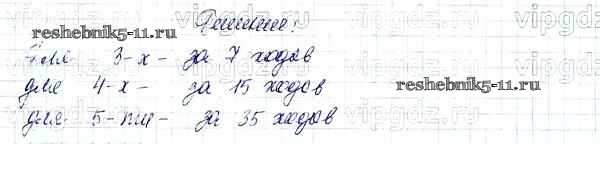 Решение:
для 3-х - за 7 ходов
для 4-х - за 15 ходов
для 5-ти - за 35 ходов
reshebnik5-11.ru
reshebnik5-11.ru
vipgdz.ru